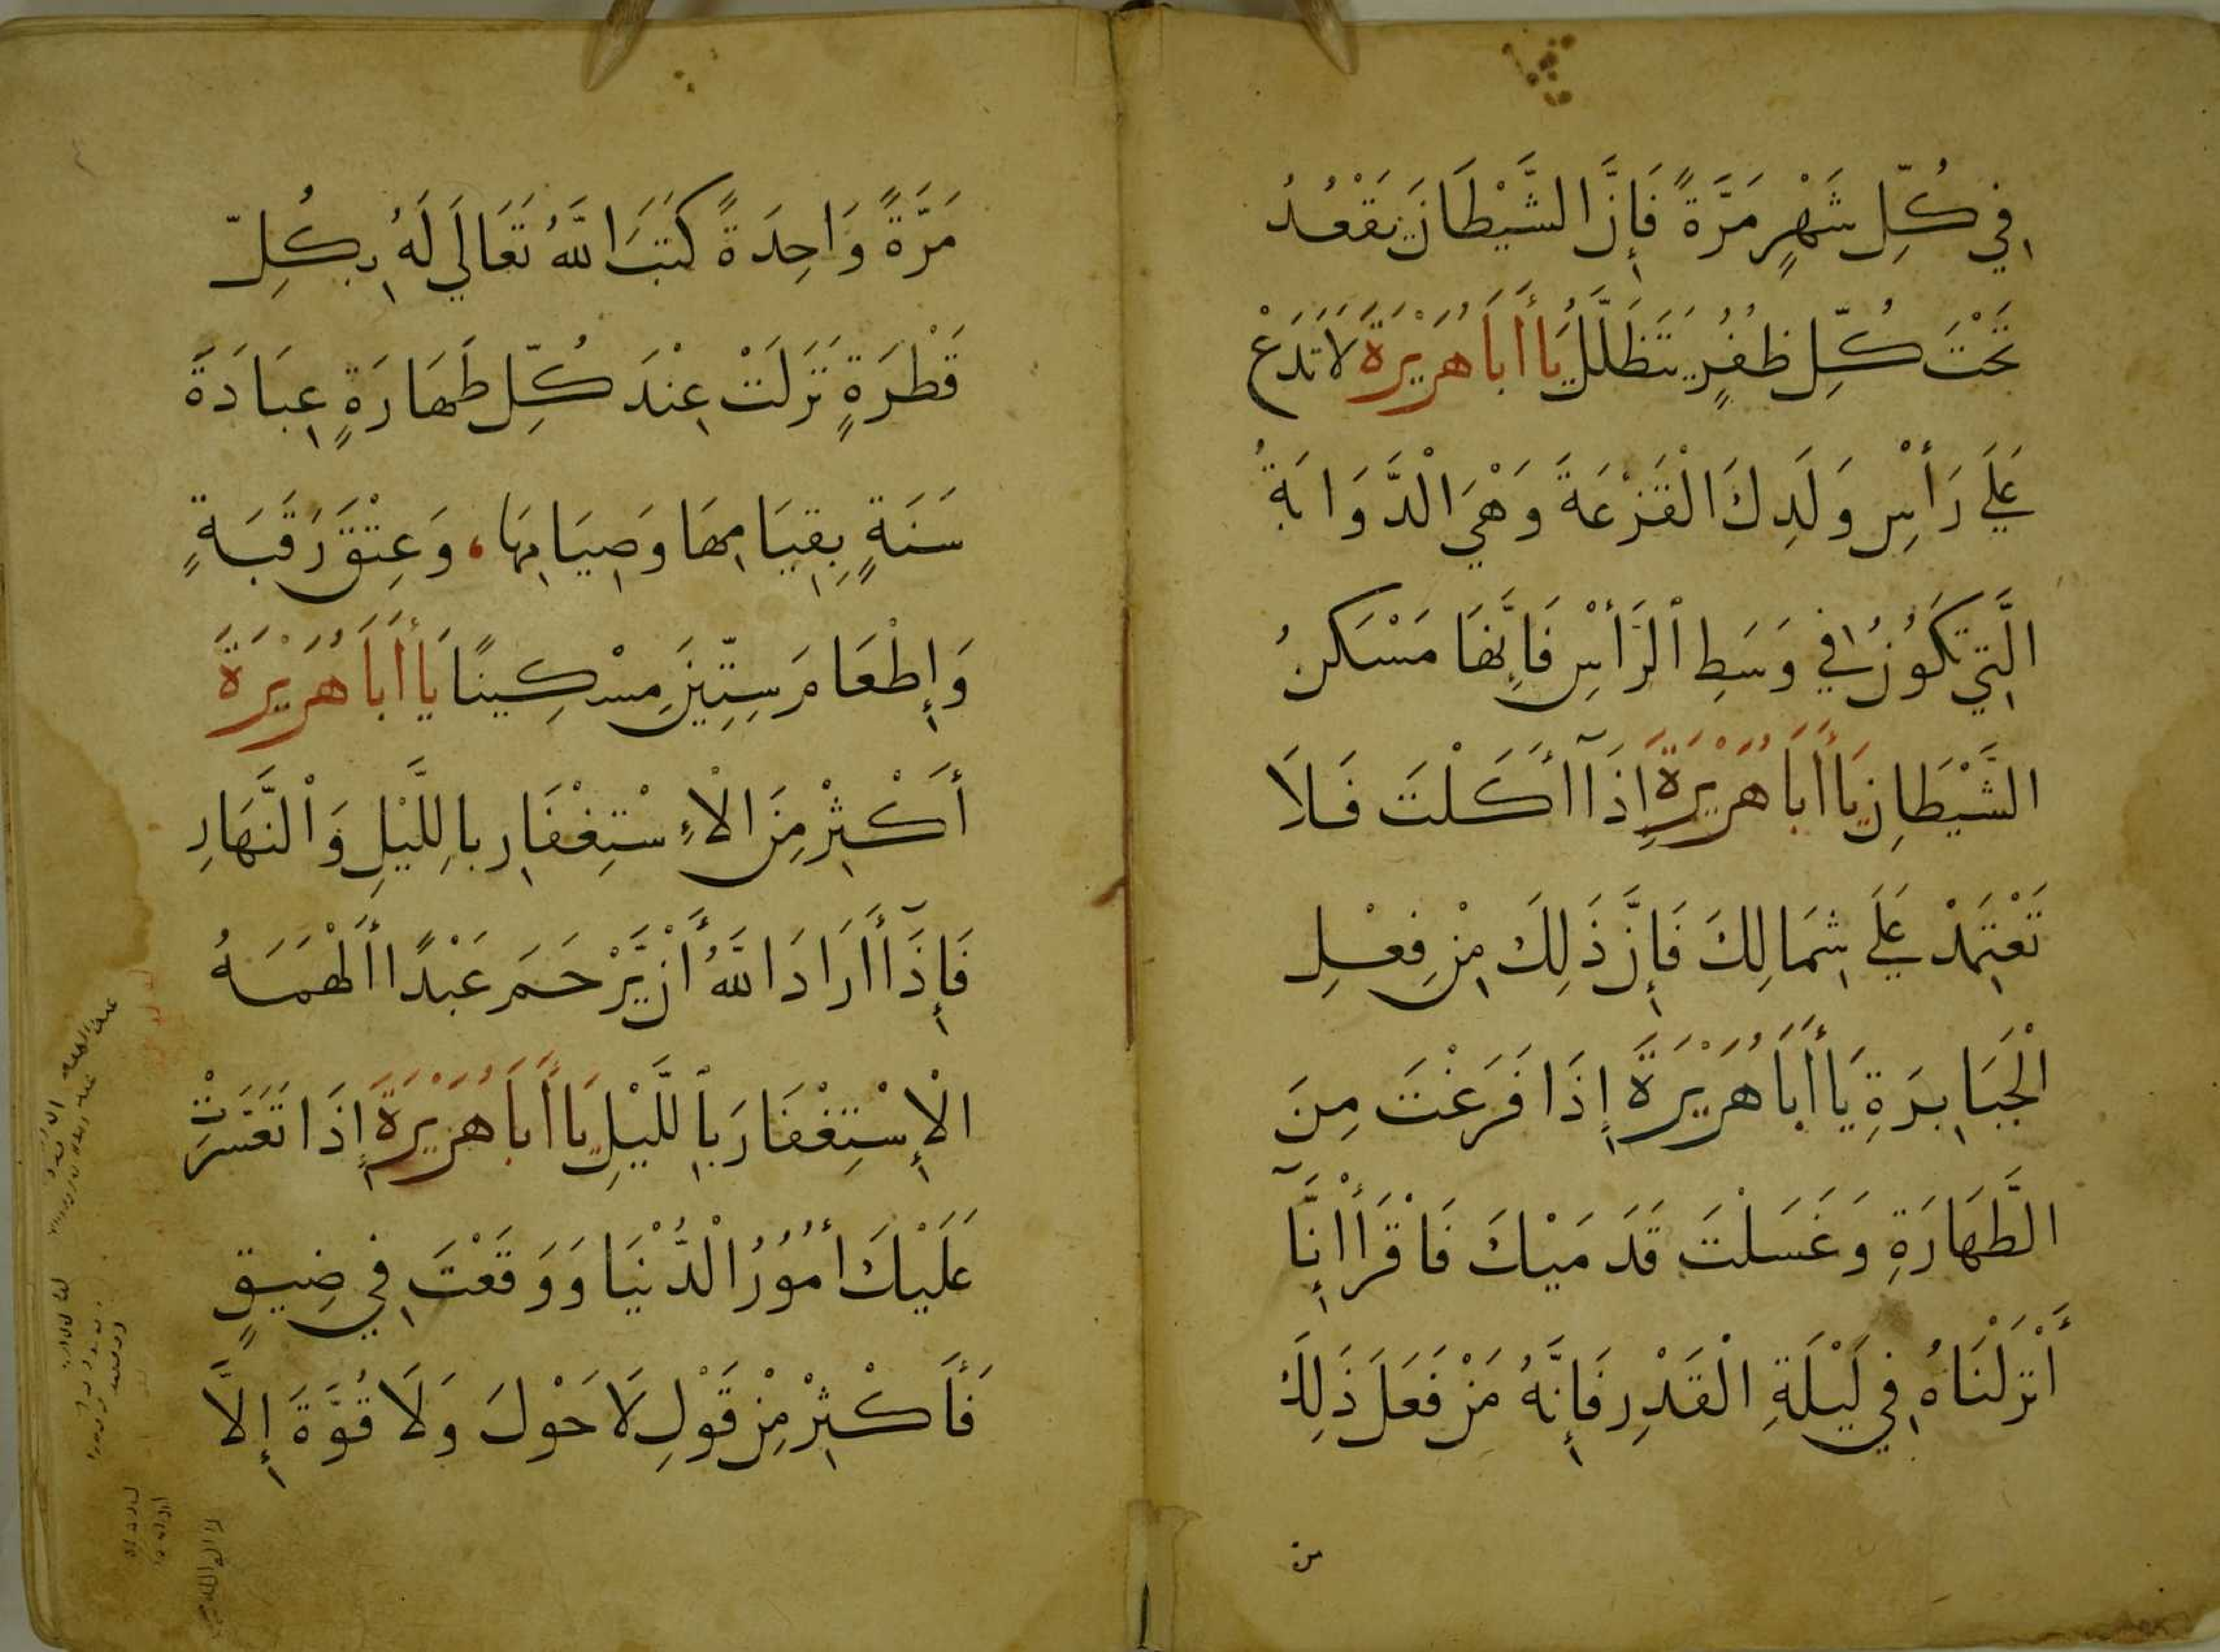 فِي كُلِّ شَهْرٍ مَرَّةً فَإِنَّ الشَّيْطَانَ يَقْعُدُ
تَحْتَ كُلِّ ظُفُرٍ يَتَظَلَّلُ يَا أَبَا هُرَيْرَةَ لَا تَدَعْ
عَلَي رَأْسِ وَلَدِكَ الْقَزْعَةَ وَهْيَ الدَّوَابَةُ
الَّتِي تَكُوْنُ فِي وَسَطِ الرَّأْسِ فَإِنَّهَا مَسْكَنُ
الشَّيْطَانِ يَا أَبَا هُرَيْرَةَ إِذَآ أَكَلْتَ فَلَا
تَعْتَمِدْ عَلَي شِمَالِكَ فَإِنَّ ذَلِكَ مِنْ فِعْلِ
الْجَبَابِرَةِ يَا أَبَا هُرَيْرَةَ إِذَا فَرَغْتَ مِنَ
الطَّهَارَةِ وَغَسَلْتَ قَدَمَيْكَ فَاقْرَأْ إِنَّآ
أَنْزَلْنَاهُ فِي لَيْلَةِ الْقَدْرِ فَإِنَّهُ مَنْ فَعَلَ ذَلِكَ
مرة
مَرَّةً وَاحِدَةً كَتَبَ اللَّهُ تَعَالَي لَهُ بِكُلِّ
قَطْرَةٍ نَزَلَتْ عِنْدَ كُلِّ طَهَارَةٍ عِبَادَةَ
سَنَةٍ بِقِيَامِهَا وَصِيَامِهَا، وَعِتْقَ رَقَبَةٍ
وَإِطْعَامَ سِتِّينَ مِسْكِينًا يَا أَبَا هُرَيْرَةَ
أَكْثِرْ مِنَ الْإِسْتِغْفَارِ بِاللَّيْلِ وَالنَّهَارِ
فَإِذَآ أَرَادَ اللَّهُ أَنْ يَّرْحَمَ عَبْدًا أَلْهَمَهُ
الْإِسْتِغْفَارَ بِاللَّيْلِ يَا أَبَا هُرَيْرَةَ إِذَا تَعَسَّرَتْ
عَلَيْكَ أُمُوْرُ الْدُّنْيَا وَوَقَعْتَ فِي ضِيقٍ
فَأَكْثِرْ مِنْ قَوْلِ لَا حَوْلَ وَلَا قُوَّةَ إِلَّا